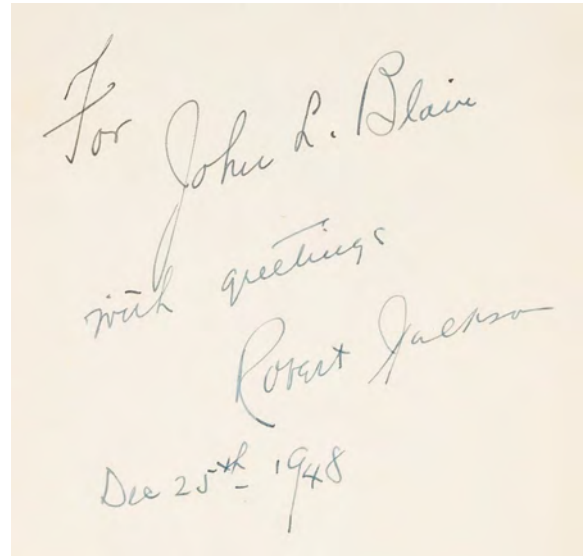 For John L. Blair
with greetings
Robert Jackson
Dec 25th 1948